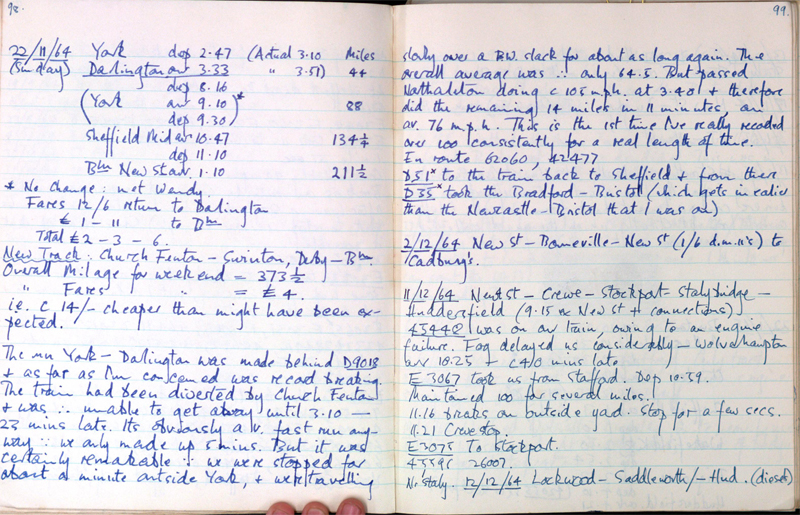 98.
22/11/64 York dep 2.47 (Actual 3.10 Miles
(Sunday) Darlington arr 3.33 " 3.51) 44
dep 8.16
(York arr 9.10)* 88
dep 9.30)
Sheffield Mid arr 10.47 134¼
dep 11.10
Bhm New St arr. 1.10 211½
* No change: met Wendy.
Fares 12/6 return to Darlington
£1-11 to Dhm
Total £2-3-6.
New Track: Church Fenton - Swinton, Derby - Bhm.
Overall Milage for weekend = 373½
" Fares " = £4.
i.e. c 14/- cheaper than might have been ex-
pected.
The run York - Darlington was made behind D9018
& as far as I'm concerned was record breaking.
The train had been diverted by Church Fenton
& was ∴ unable to get away until 3.10 —
23 mins late. Its obviously a v. fast run any-
way ∵ we only made up 5 mins. But it was
certainly remarkable ∵ we were stopped for
about a minute outside York, & were travelling
99.
slowly over a B.W. slack for about as long again. The
overall average was ∴ only 64.5. But passed
Northallerton doing c 105 mph. at 3.40½ & therefore
did the remaining 14 miles in 11 minutes, an
av. 76 m.p.h. This is the 1st time I've really recorded
over 100 consistently for a real length of time.
En route 62060, 42477
D51* to the train back to Sheffield & from there
D35* took the Bradford - Bristol (which gets in earlier
than the Newcastle - Bristol that I was on)
2/12/64 New St - Bourneville - New St (1/6 d.m.u's) to
Cadbury's.
11/12/64 New St - Crewe - Stockport - Stalybridge -
Huddersfield (9.15 ex New St + connections)
45442 was on our train, owing to an engine
failure. Fog delayed us considerably - Wolverhampton
arr 10.25 + c40 mins late
E 3067 took us from Stafford. Dep 10.59.
Maintained 100 for several miles.
11.16 brakes on outside yard. Stop for a few secs.
11.21 Crewe stop.
E3075 To Stockport.
26007.
Nr Staly. 12/12/64 Lockwood - Saddleworth/- Hud. (diesel)